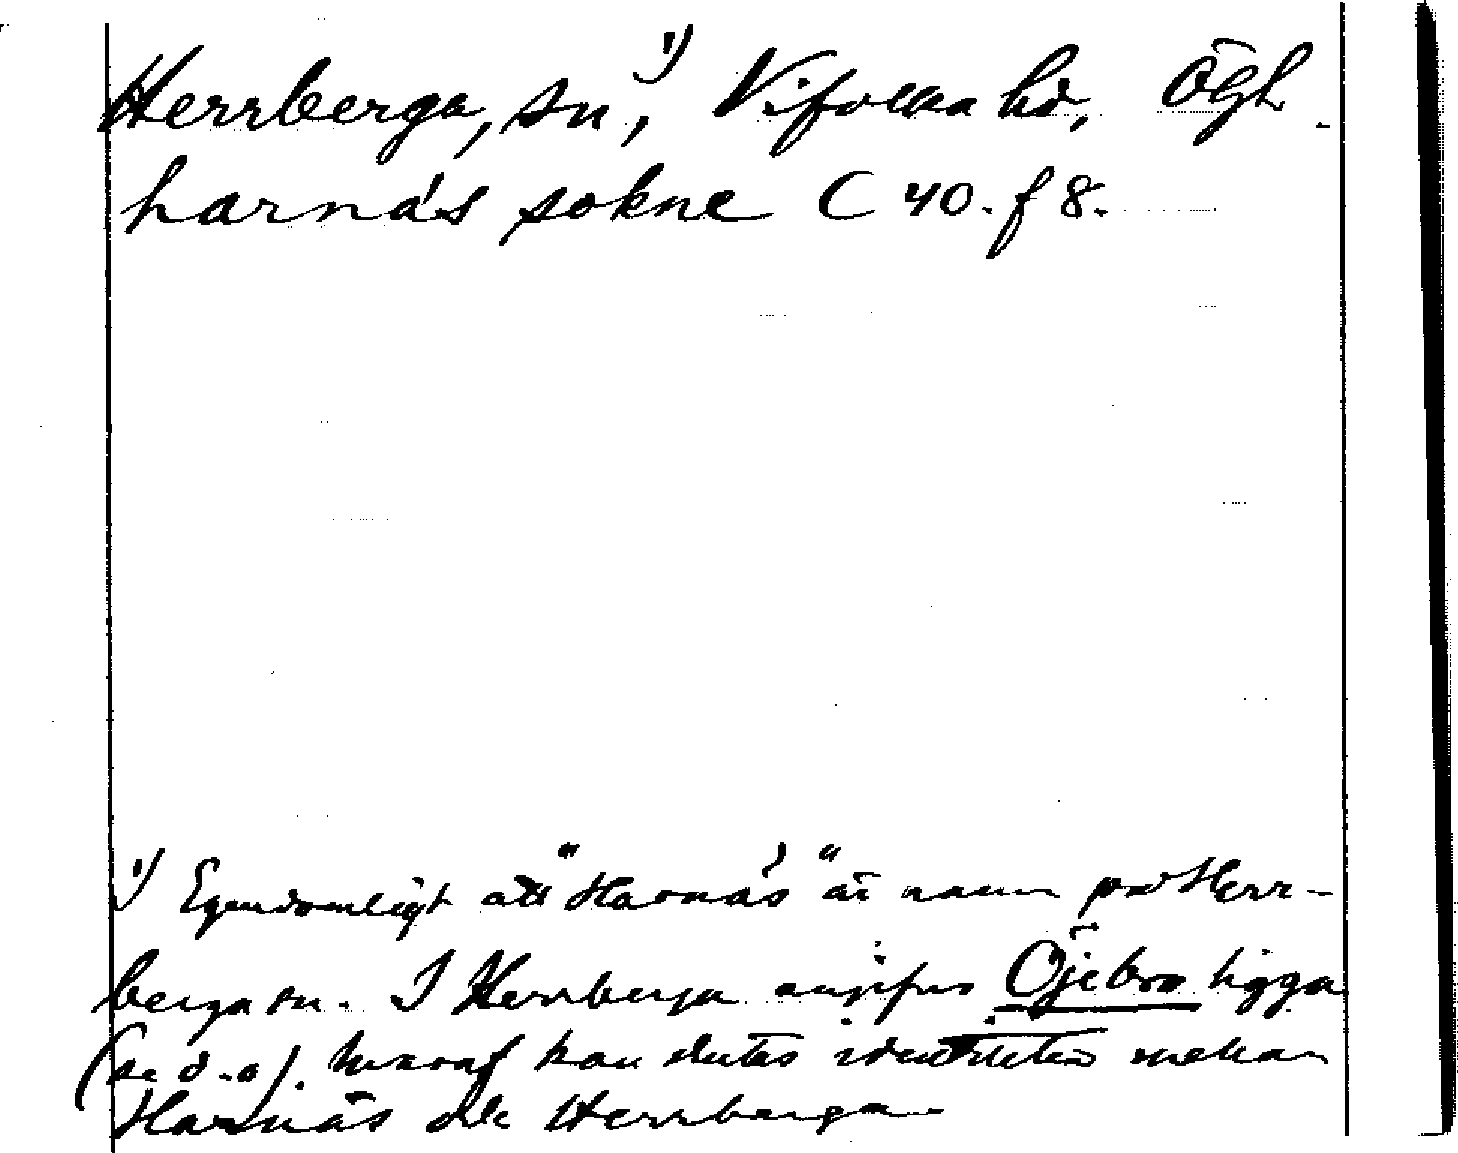 Herrberga, sn,¹⁾ Vifolka hd, Ögl.
harnás sokne C 40. f 8.
¹⁾ Egendomligt att "Harnás" är namn på Herr-
berga sn. I Herrberga angifves Öjebro ligga
(se d. o). Hvaraf kan slutas identiteten mellan
Harnäs och Herrberga